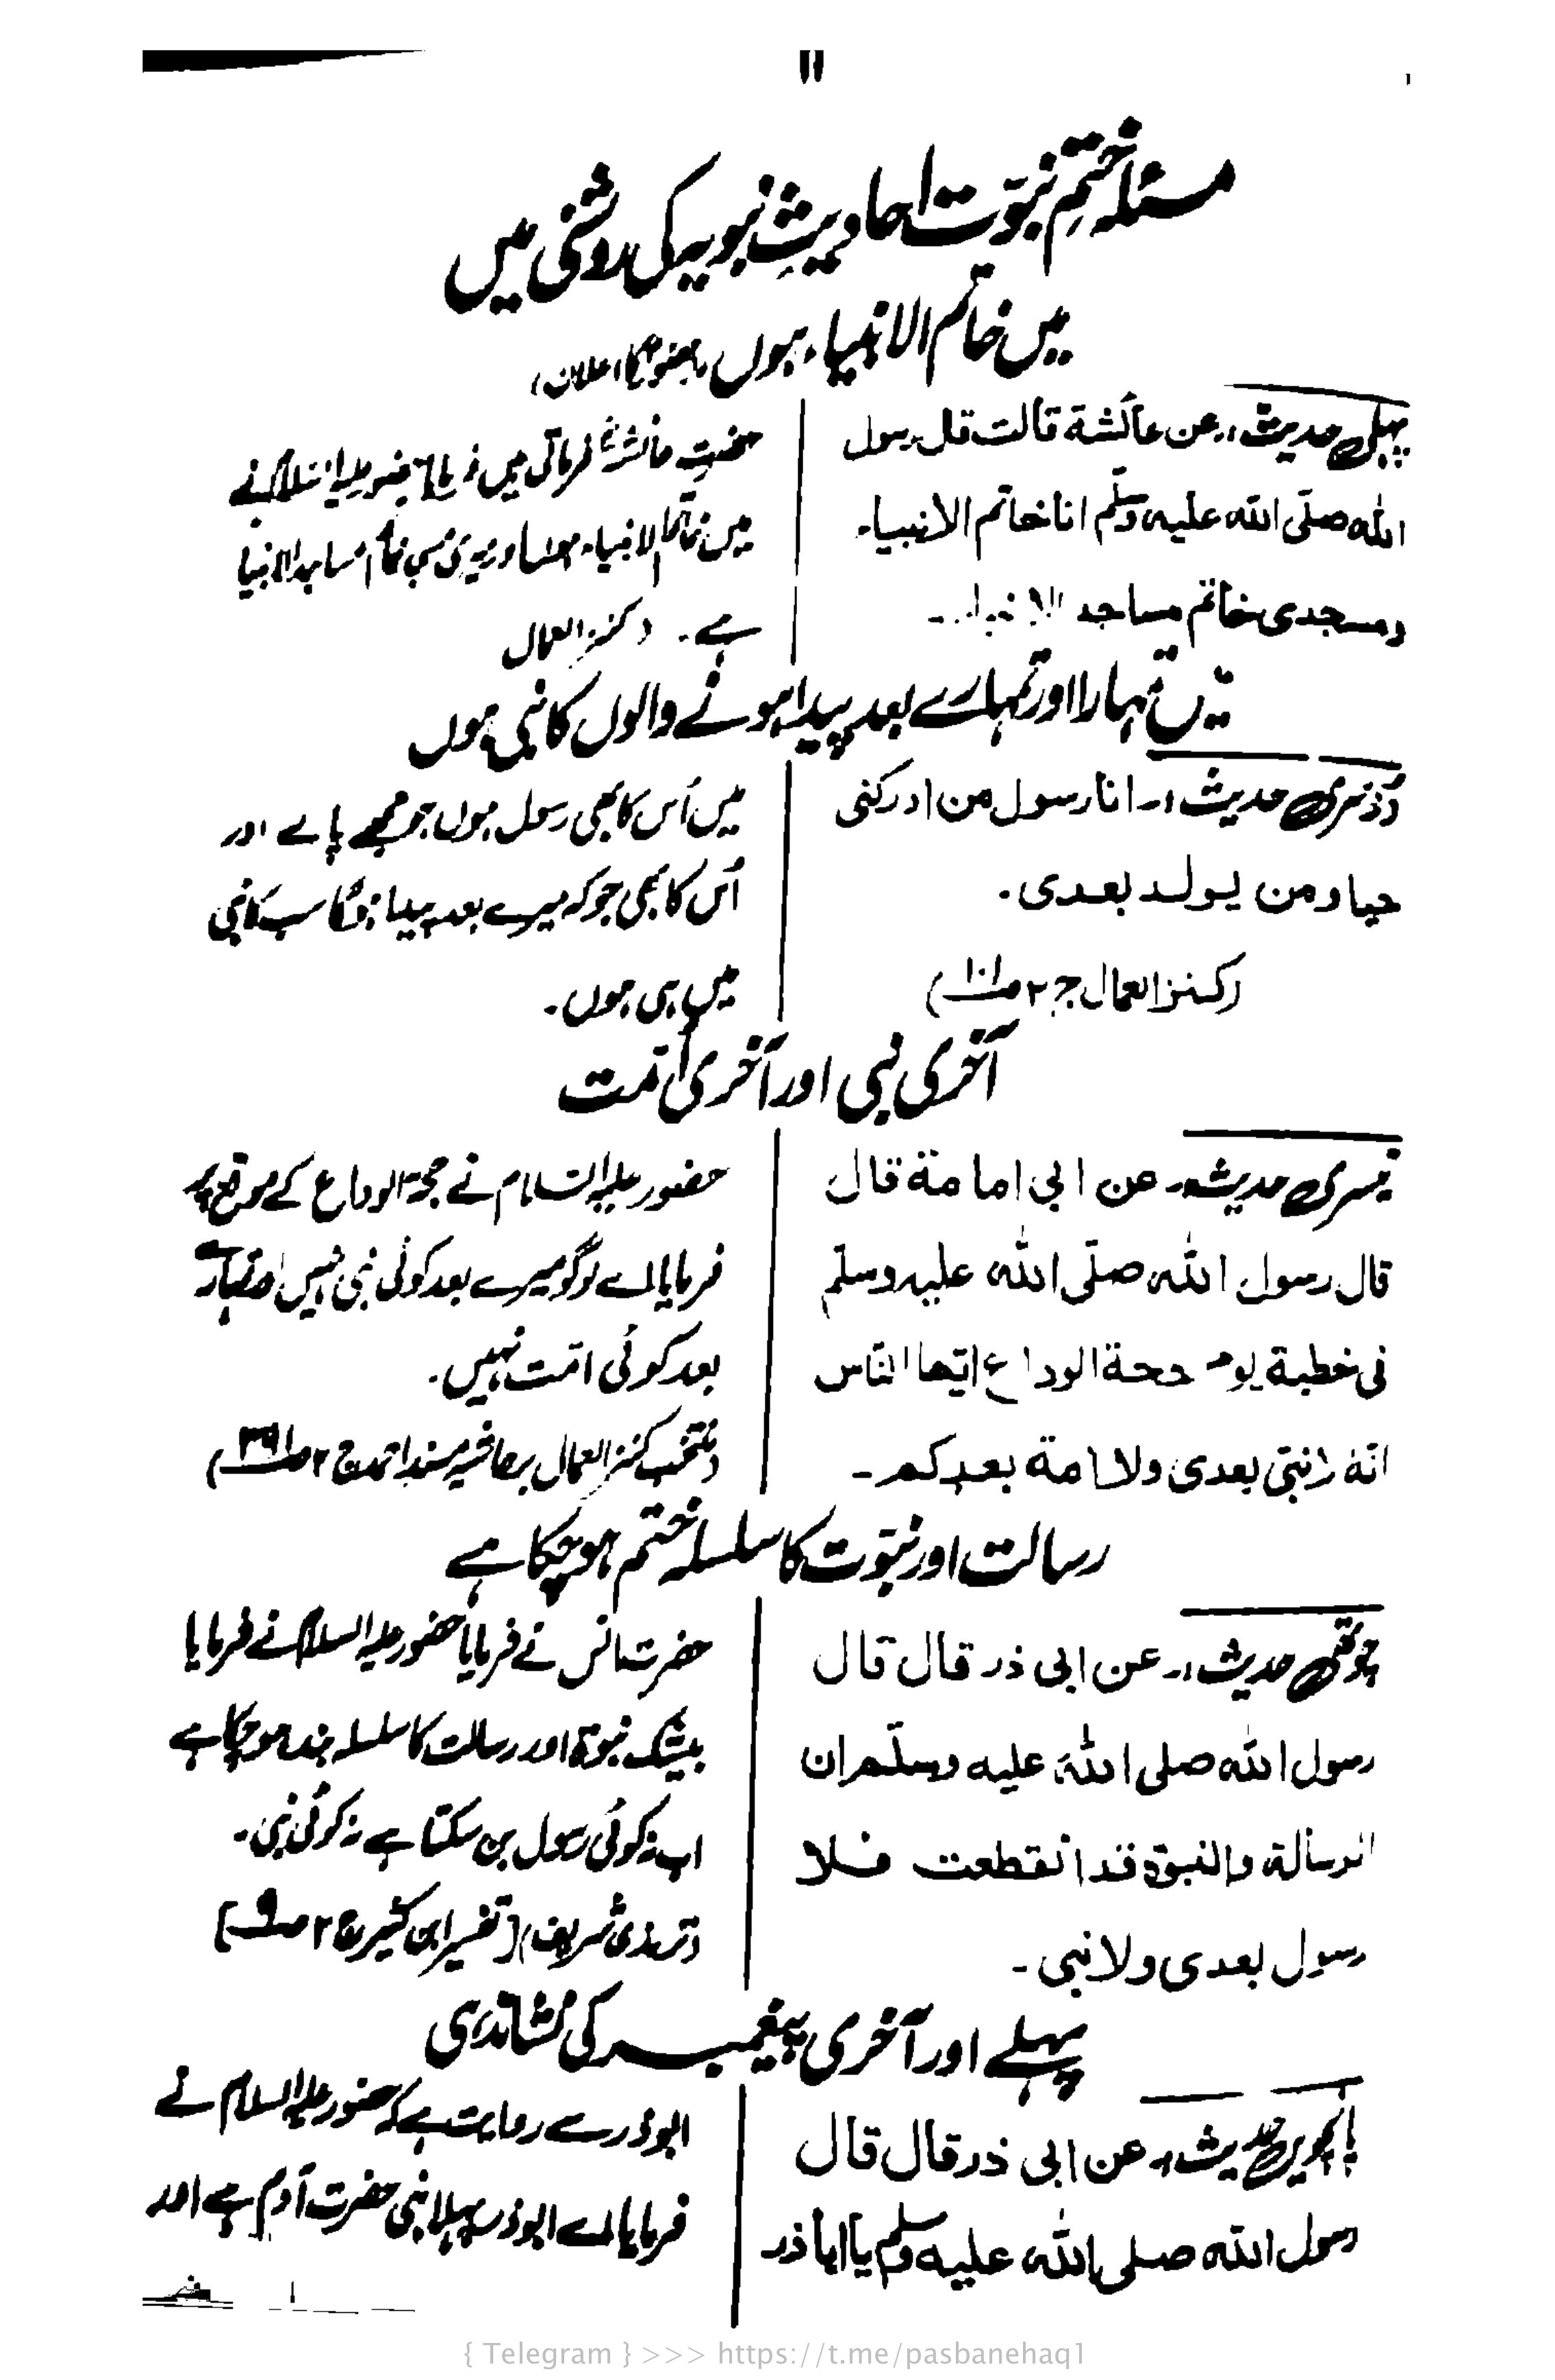 ۱۱
مسئلہ ختمِ نبوّت احادیثِ نبویہ کی روشنی میں
میں خاتم الانبیاء ہوں (حضورؐ کا اعلان)
پہلی حدیث:۔ عن عائشة قالت قال رسول
الله صلّى الله عليه وسلّم انا خاتم الانبياء۔
ومسجدى خاتم مساجد الانبياء۔
حضرت عائشہؓ فرماتی ہیں فرمایا حضور علیہ السلام نے
میں خاتم الانبیاء ہوں اور میری مسجد خاتم مساجد الانبیا
ہے۔ (کنز العمال
میں تمہارا اور تمہارے بعد پیدا ہونے والوں کا نبی ہوں
دوسری حدیث:۔ انا رسول من ادركنى
حيا ومن يولد بعدى۔
(کنز العمال ج ۲ ص ۱۰۱)
میں اُس کا بھی رسول ہوں جو مجھے پالے اور
اُس کا بھی جو کہ میرے بعد پیدا ہوگا سب کا نبی
میں ہی ہوں۔
آخری نبی اور آخری اُمّت
تیسری حدیث:۔ عن ابى امامة قال
قال رسول الله صلّى الله عليه وسلّم
فى خطبة يوم حجة الوداع ايّها النّاس
انّه لا نبىّ بعدى ولا امة بعدكم۔
حضور علیہ السلام نے حجۃ الوداع کے موقع پر
فرمایا اے لوگو میرے بعد کوئی نبی نہیں اور تمہارے
بعد کوئی امّت نہیں۔
(منتخب کنز العمال برحاشیہ مسند احمد ج ۲ ص ۳۹۱)
رسالت اور نبوّت کا سلسلہ ختم ہو چکا ہے
چوتھی حدیث:۔ عن ابى ذر قال قال
رسول الله صلى الله عليه وسلّم ان
الرسالة والنبوة قد انقطعت فلا
رسول بعدى ولا نبى۔
حضرت انس نے فرمایا حضور علیہ السلام نے فرمایا
بیشک نبوۃ اور رسالت کا سلسلہ بند ہو چکا ہے
اب نہ کوئی رسول بن سکتا ہے نہ کوئی نبی۔
(ترمذی شریف) [تفسیر ابن کثیر ج ۲ ص ۹]
پہلے اور آخری پیغمبر کی نشاندہی
پانچویں حدیث:۔ عن ابى ذر قال قال
رسول الله صلى الله عليه وسلم يا ابا ذر
ابوذر سے روایت ہے کہ حضور علیہ السلام نے
فرمایا اے ابوذر پہلا نبی حضرت آدم ہے اور
{ Telegram } >>> https://t.me/pasbanehaq1